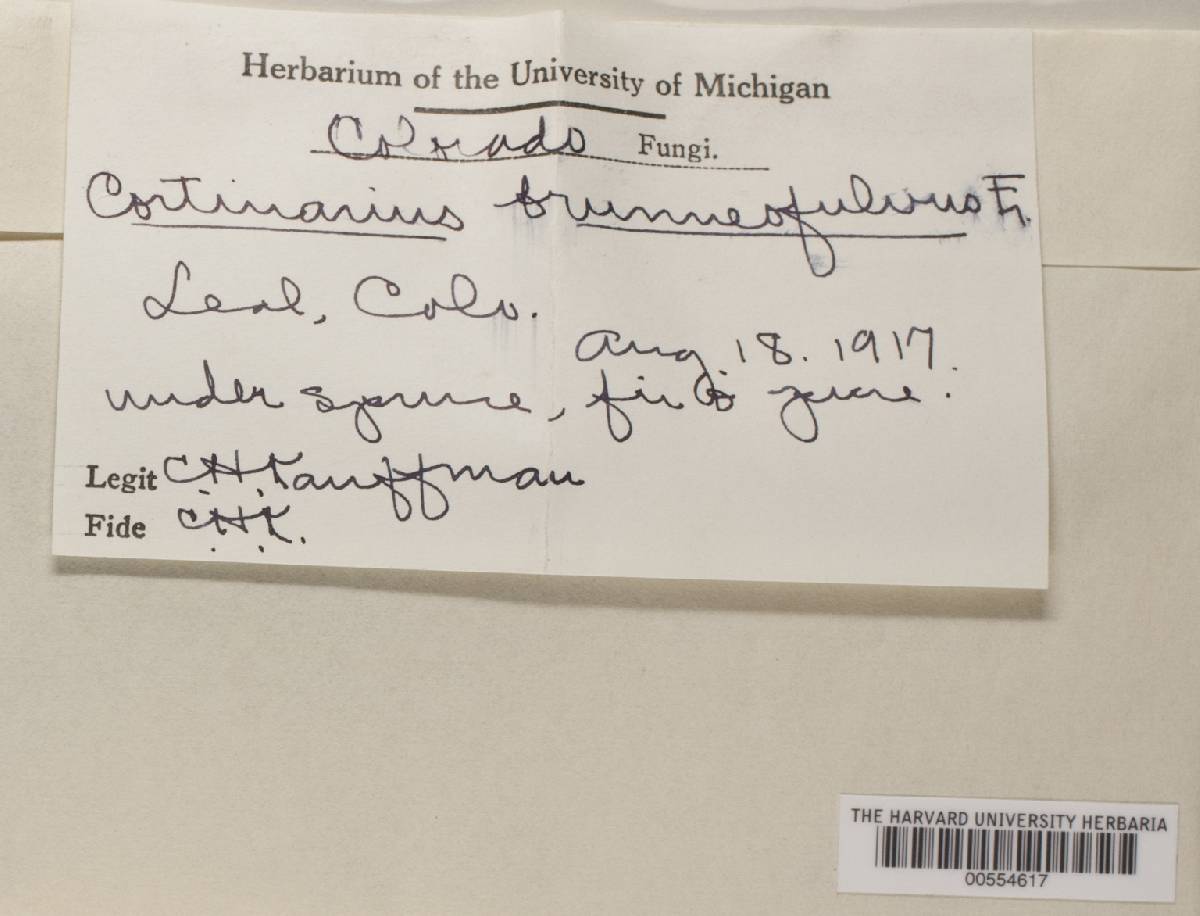 Herbarium of the University of Michigan
Colorado Fungi.
Cortinarius brunneofulvus Fr.
Leal, Colo.
Aug 18. 1917.
under spruce, fir & pine.
Legit C.H. Kauffman
Fide C.H.K.
THE HARVARD UNIVERSITY HERBARIA
00554617